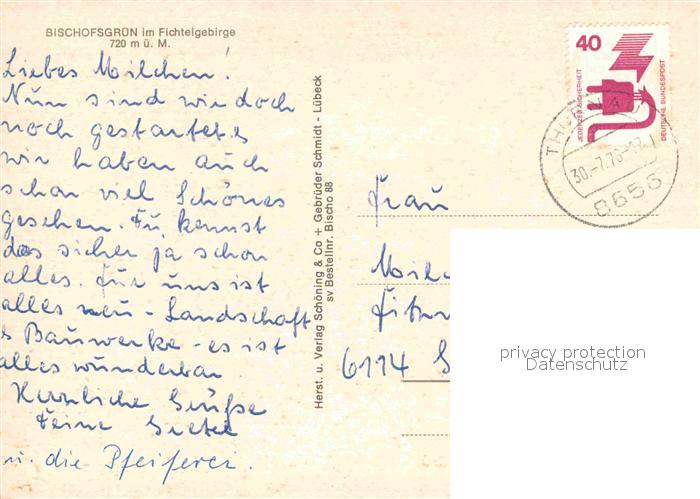 BISCHOFSGRÜN im Fichtelgebirge
720 m ü. M.
Liebes Milchen!
Nun sind wir doch
noch gestartet &
wir haben auch
schon viel Schönes
gesehen. Du kennst
das sicher ja schon
alles. Für uns ist
alles neu - Landschaft
& Bauwerke - es ist
alles wunderbar
Herzliche Grüße
Deine
u. die Pfeiferei.
Herst. u. Verlag Schöning & Co + Gebrüder Schmidt - Lübeck
sv Bestellnr. Bischo 88
40
JEDERZEIT SICHERHEIT
DEUTSCHE BUNDESPOST
30.-7.75
8655
Frau
Milc
6114
privacy protection
Datenschutz